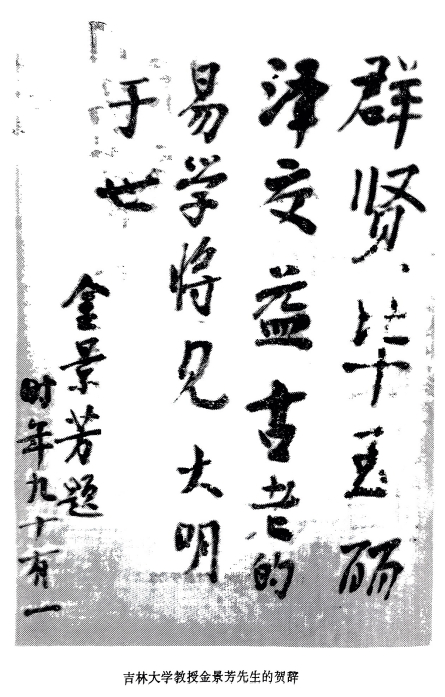 群贤毕至丽
泽交益古老的
易学将见大明
于世
金景芳题
时年九十有一
吉林大学教授金景芳先生的贺辞